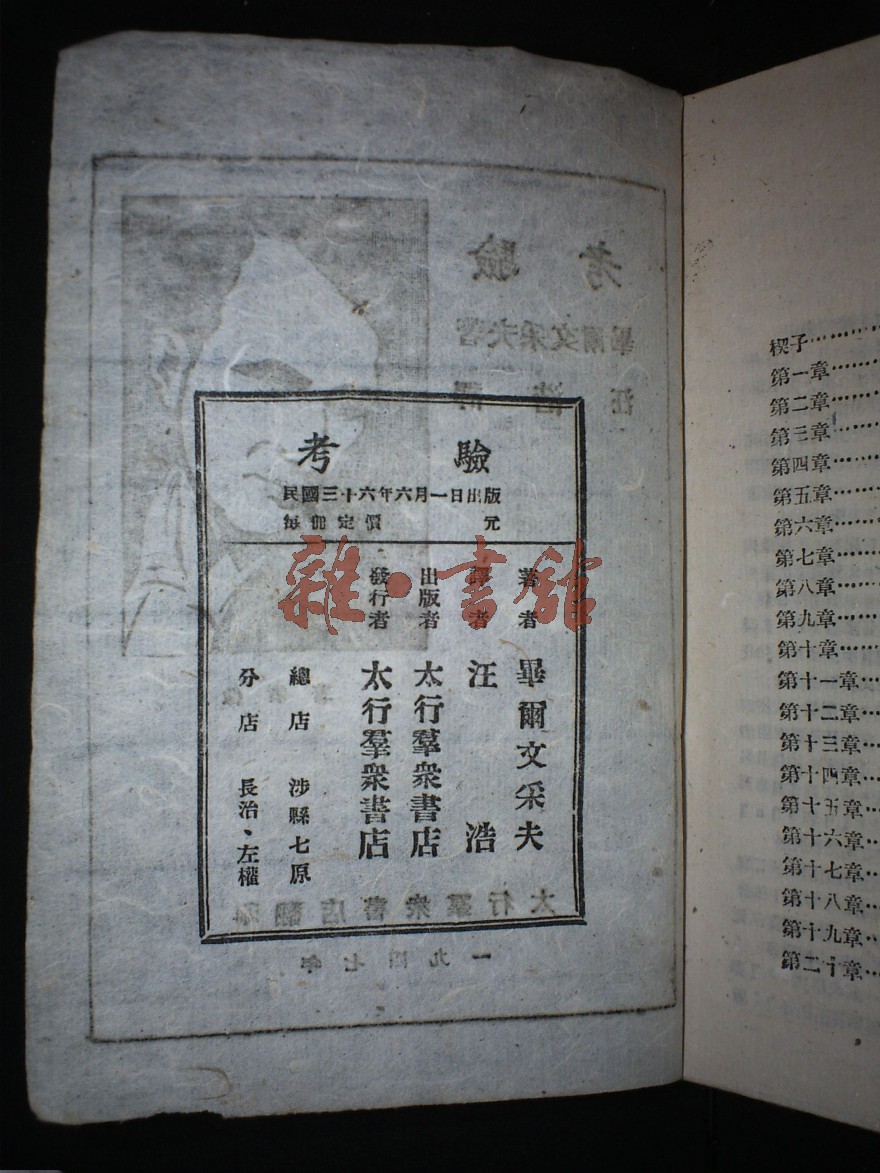 考驗
民國三十六年六月一日出版
每冊定價 元
著者 畢爾文采夫
譯者 汪浩
出版者 太行羣衆書店
發行者 太行羣衆書店
總店 涉縣七原
分店 長治、左權
雜·書舘
考驗
畢爾文采夫著
汪浩譯
太行羣衆書店翻印
一九四七年
楔子……
第一章……
第二章……
第三章……
第四章……
第五章……
第六章……
第七章……
第八章……
第九章……
第十章……
第十一章…
第十二章…
第十三章…
第十四章…
第十五章…
第十六章…
第十七章…
第十八章…
第十九章…
第二十章…